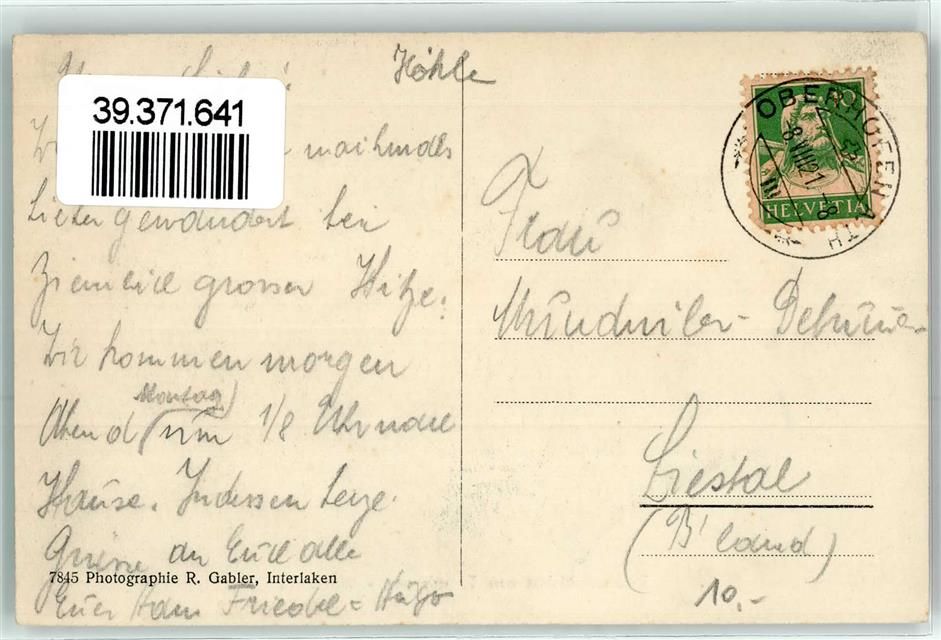 Höhle
39.371.641
lieber gewandert bei
ziemlich grosser Hitze.
Wir kommen morgen
Montag
Abend um 1/8 Uhr nach
Hause. Indessen herzl.
Grüsse an Euch alle
7845 Photographie R. Gabler, Interlaken
Euer Friedel = Hugo
OBERHOFEN
8.VIII.21.-8
10
HELVETIA
Frau
Mundwiler-
Liestal
(B'land)
10.-